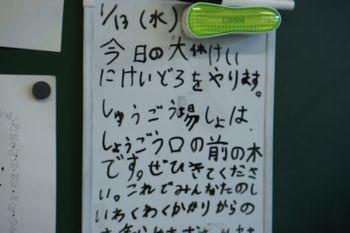 1/13(水)
今日の大休けい
にけいどろをやります。
しゅうごう場しょは
しょうこう口の前の木
です。ぜひきてくださ
い。これでみんなたのし
いわくわくかかりからの